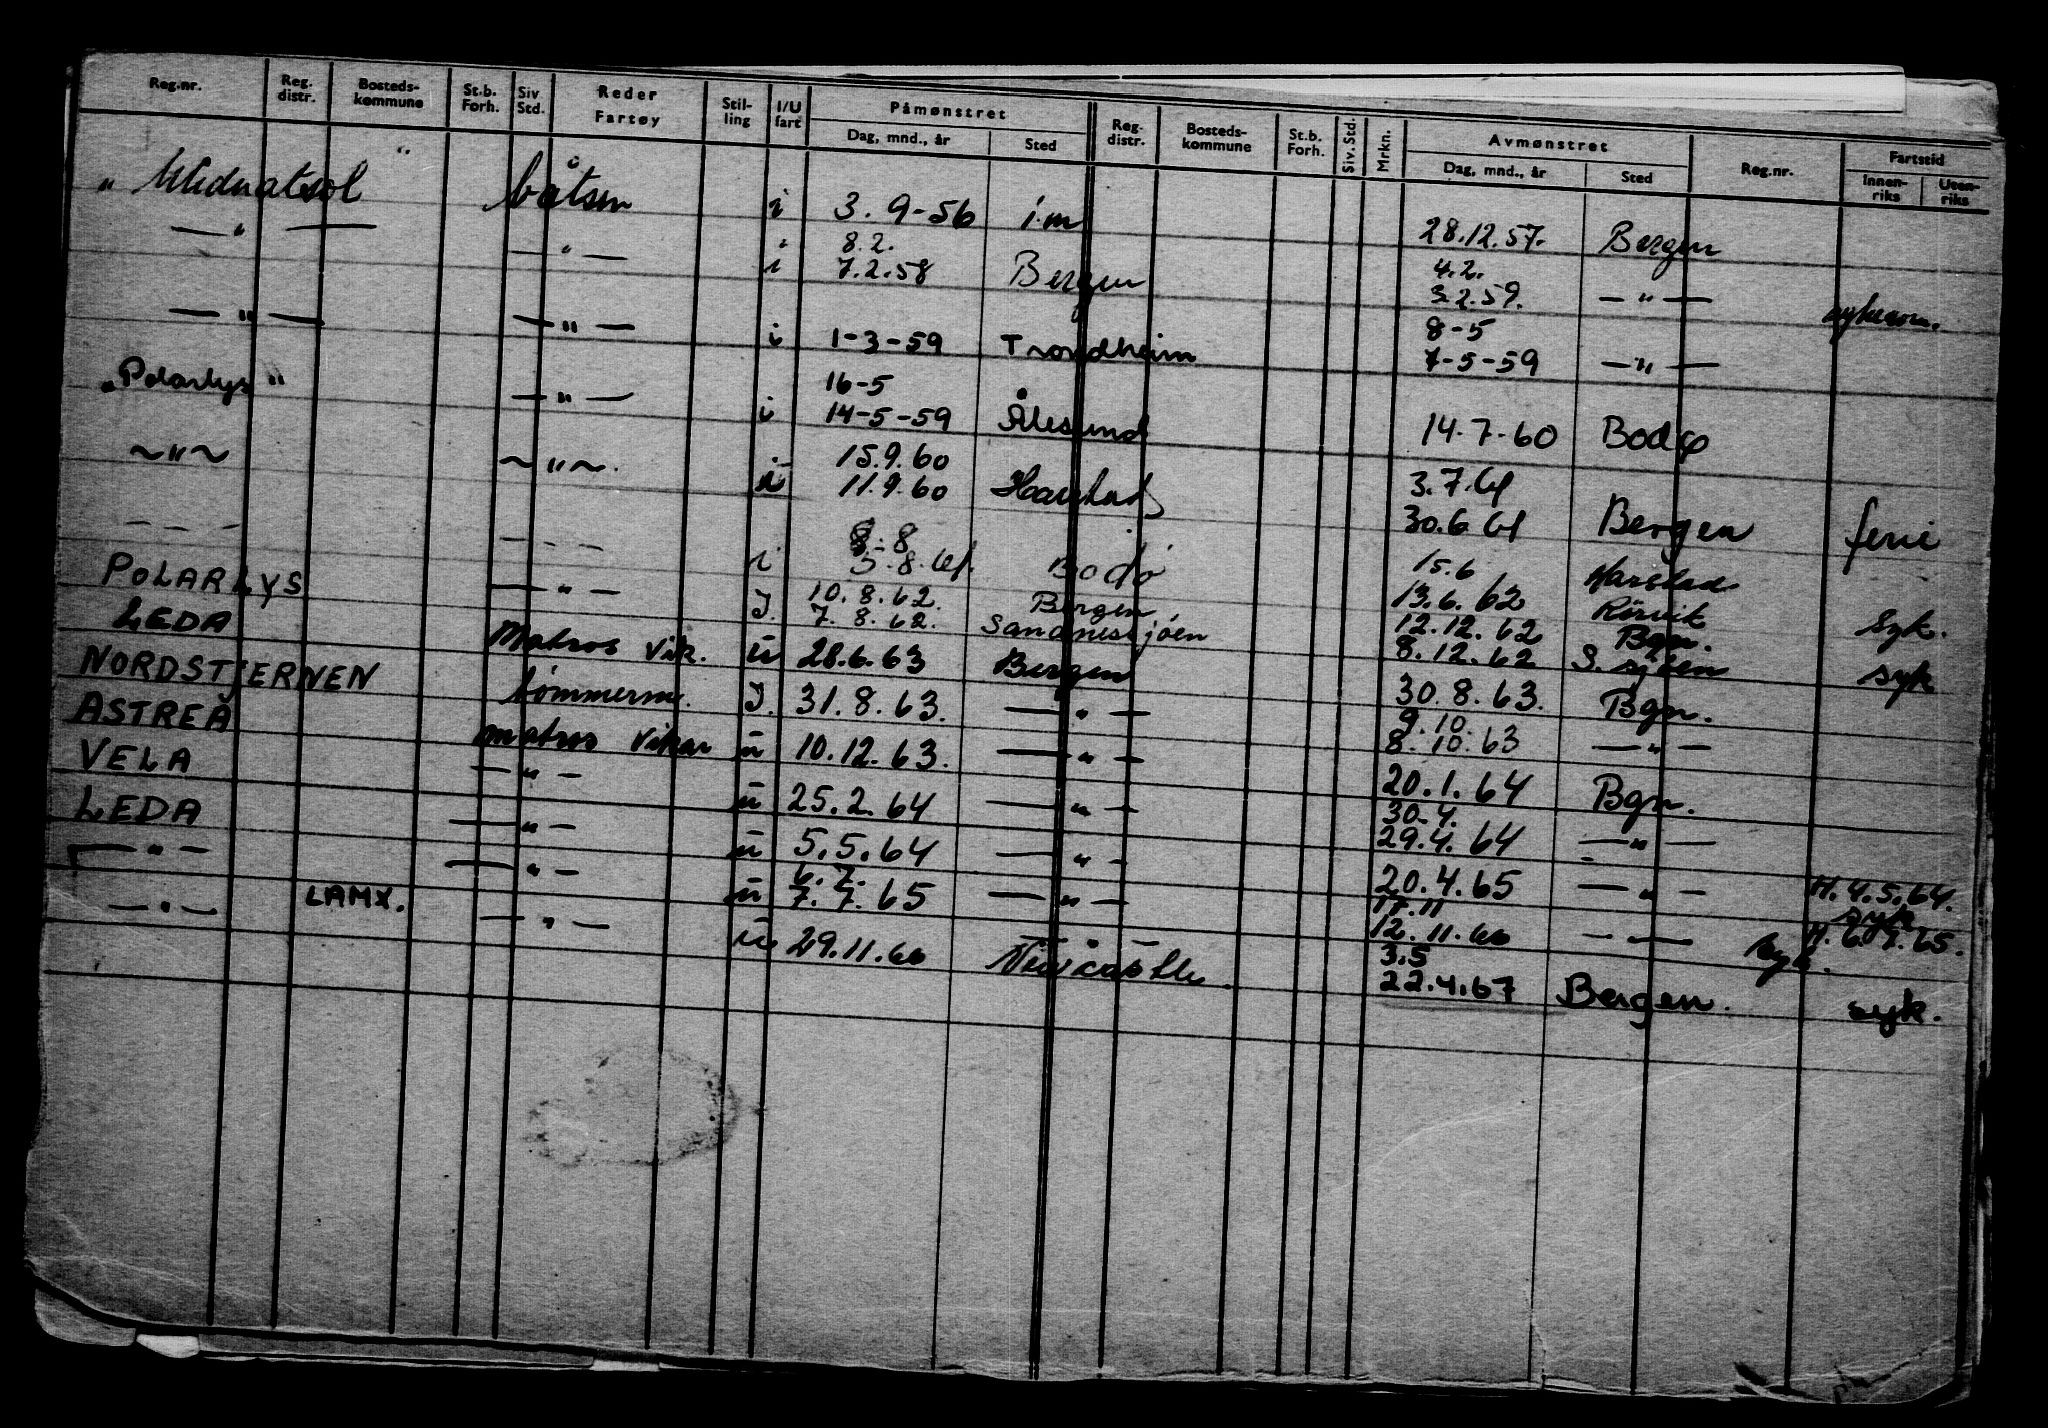 Reg.nr. Reg. distr. Bosteds-kommune St.b. Forh. Siv. Std. Reder Fartøy Stil-ling I/U fart Påmønstret Dag, mnd., år Sted Reg.-distr. Bosteds-kommune St.b. Forh. Siv. Std. Mrkn. Avmønstret Dag, mnd., år Sted Reg.nr. Fartstid Innen-riks Uten-riks
" Midnatsol " båtsm i 3.9-56 i.m 28.12.57. Bergen
— " — — " — i 8.2. 7.2.58 Bergen 4.2. 3.2.59. — " — sykdom.
— " — — " — i 1-3-59 Trondheim 8-5 7-5-59 — " —
"Polarlys" — " — i 16-5 14-5-59 Ålesund 14.7.60 Bodø
~ " ~ ~ " ~. i 15.9.60 11.9.60 Harstad 3.7.61 30.6 61 Bergen ferie
- - - - - - - i 8-8 5.8.61. Bodø 15.6 13.6.62 Harstad Rörvik syk.
POLARLYS — " — I. 10.8.62. 7.8.62. Bergen Sandnessjöen 12.12.62 8.12.62 Bgn. S. sjöen syk
LEDA Matros vik. u 28.6.63 Bergen 30.8.63. Bgn.
NORDSTJERNEN tömmerm. I. 31.8.63. — " — 9.10. 8.10.63 — " —
ASTREA matros vikar u 10.12.63. — " — 20.1.64 Bgn.
VELA — " — u 25.2.64 — " — 30.4. 29.4.64 — " —
LEDA — " — u 5.5.64 — " — 20.4.65 — " — H. 4.5.64. syk
— " — — " — u 6.7. 7.7.65 — " — 17.11 12.11.66 — " — syk. H. 6.7.65.
— " — LAMX. — " — u 29.11.66 Newcastle. 3.5 22.4.67 Bergen. syk.